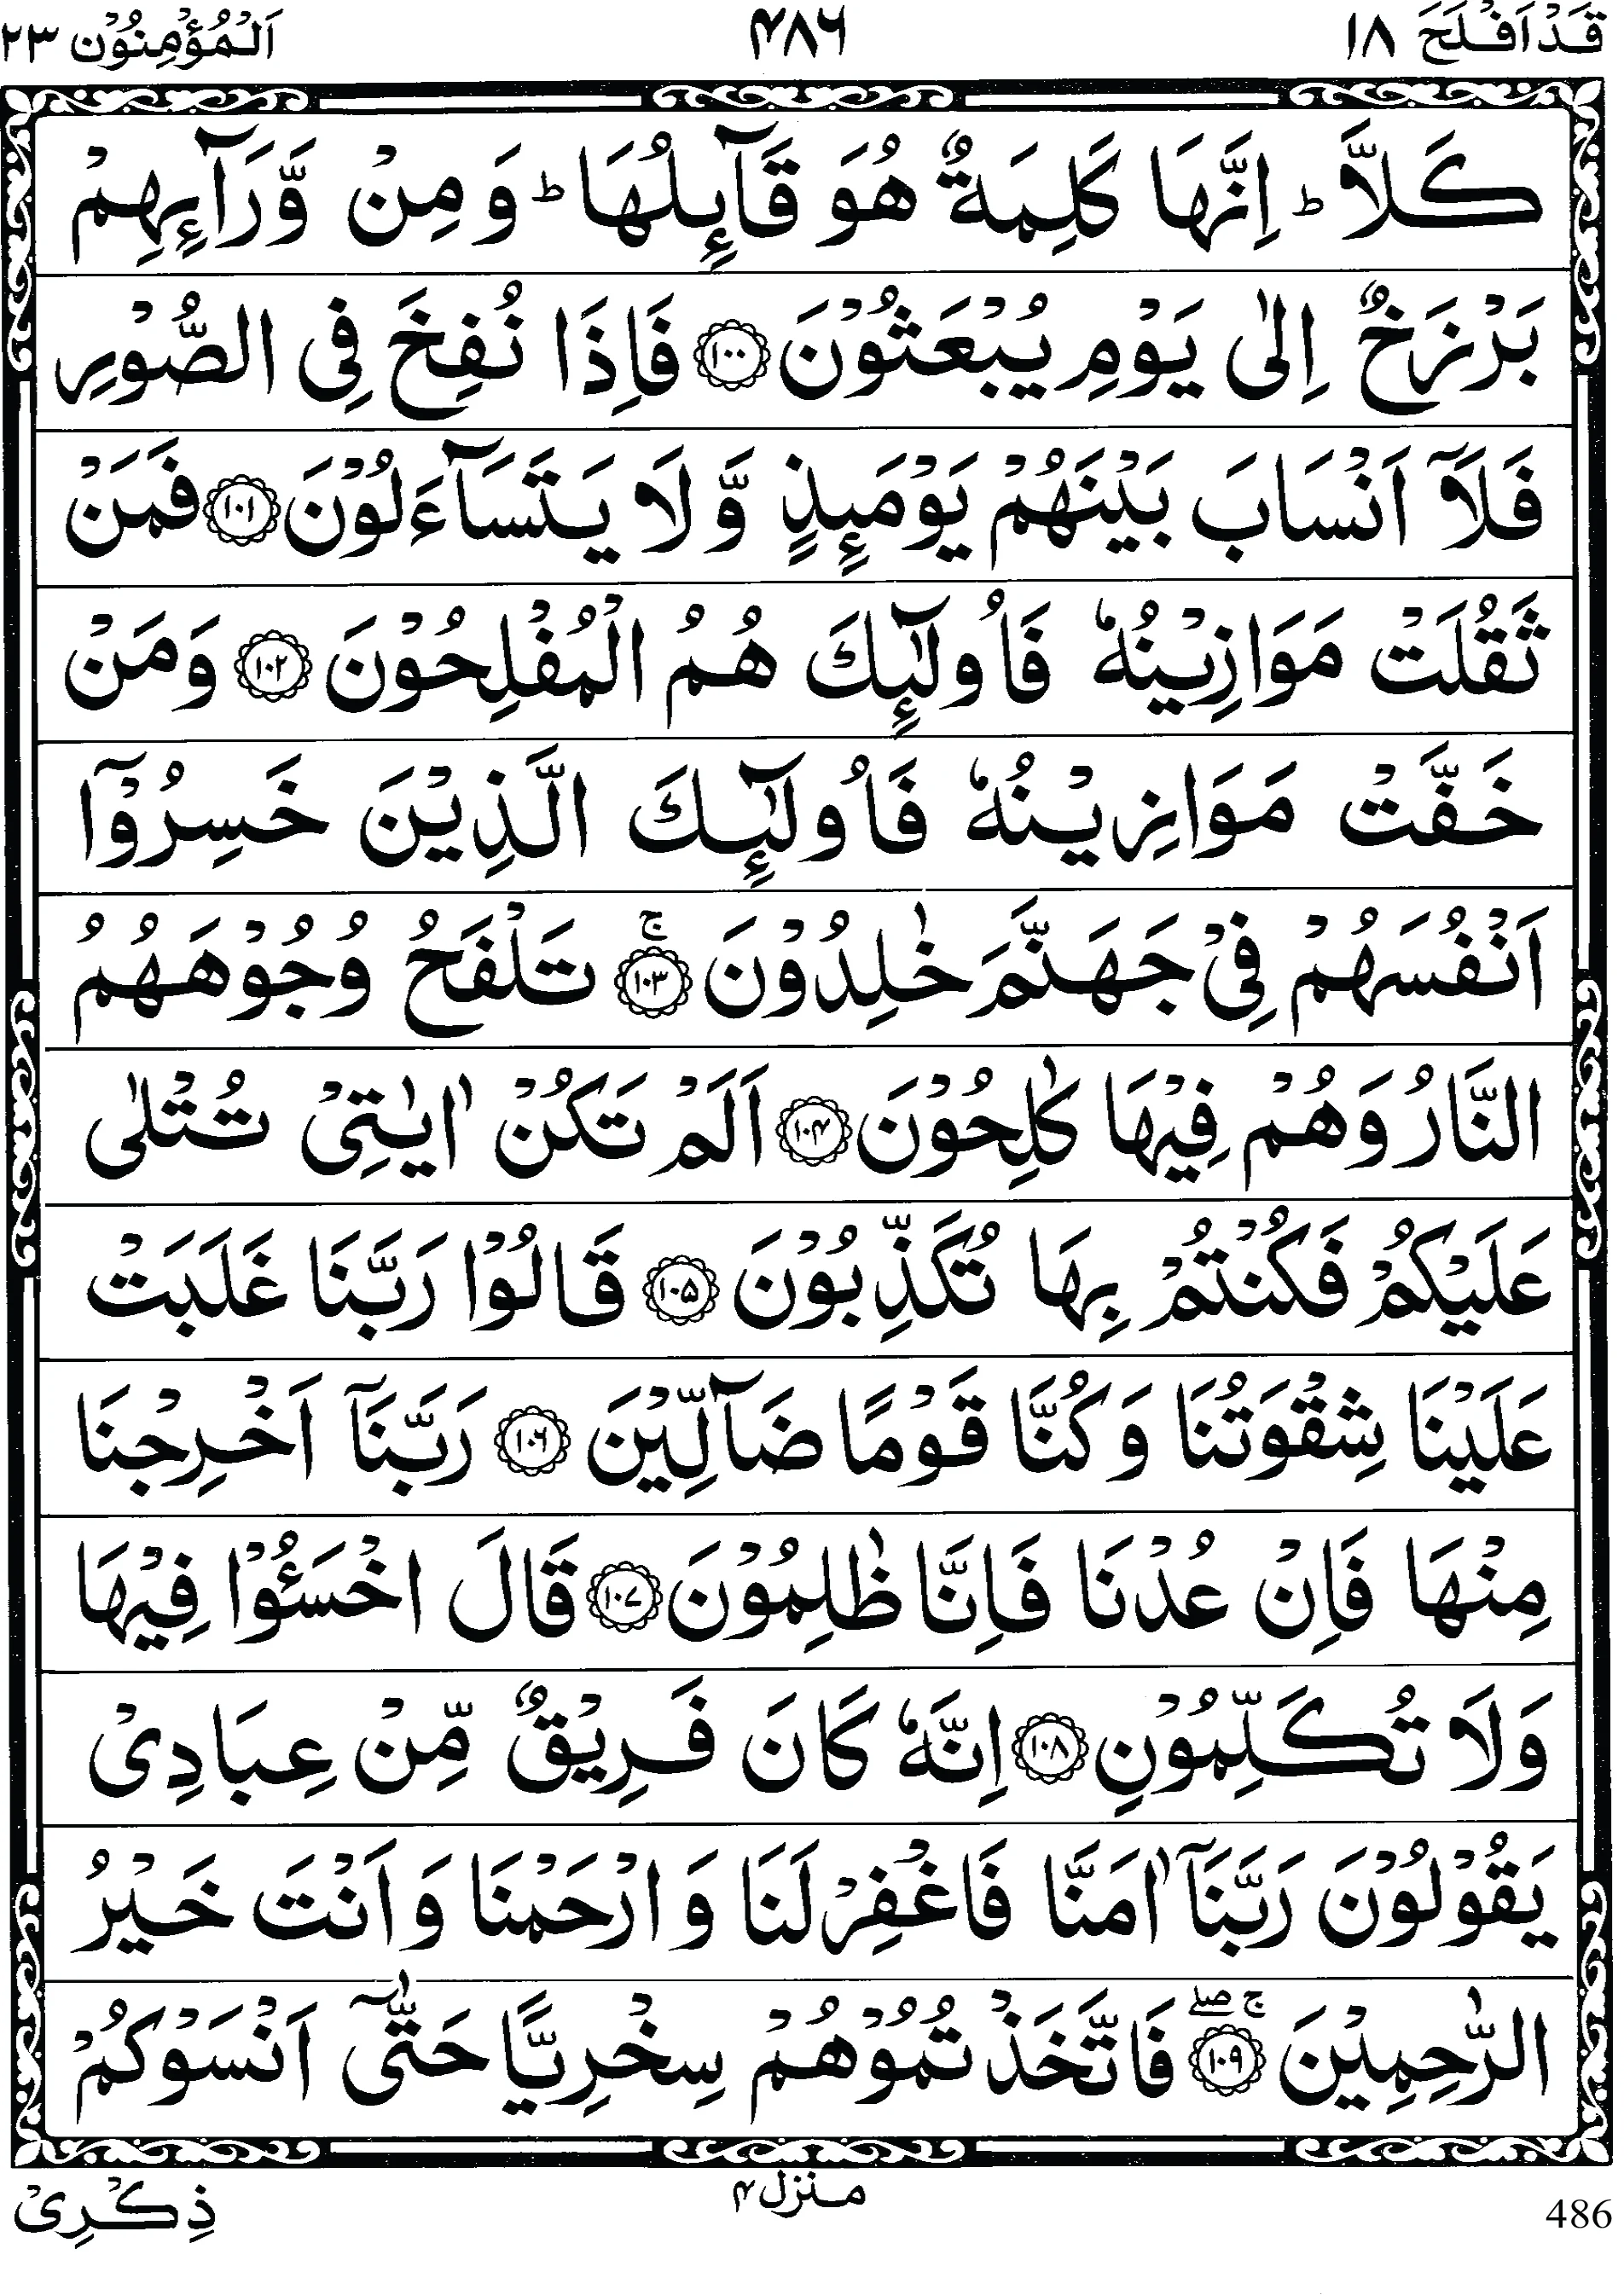 قَدْ اَفْلَحَ ١٨ ۴۸۶ اَلْمُؤْمِنُوْن ٢٣
كَلَّا ؕ اِنَّهَا كَلِمَةٌ هُوَ قَآىِٕلُهَا ؕ وَ مِنْ وَّرَآىِٕهِمْ
بَرْزَخٌ اِلٰى يَوْمِ يُبْعَثُوْنَ ﴿۱۰۰﴾ فَاِذَا نُفِخَ فِى الصُّوْرِ
فَلَاۤ اَنْسَابَ بَيْنَهُمْ يَوْمَىِٕذٍ وَّ لَا يَتَسَآءَلُوْنَ ﴿۱۰۱﴾ فَمَنْ
ثَقُلَتْ مَوَازِيْنُهٗ فَاُولٰٓىِٕكَ هُمُ الْمُفْلِحُوْنَ ﴿۱۰۲﴾ وَ مَنْ
خَفَّتْ مَوَازِيْنُهٗ فَاُولٰٓىِٕكَ الَّذِيْنَ خَسِرُوْۤا
اَنْفُسَهُمْ فِىْ جَهَنَّمَ خٰلِدُوْنَ ﴿۱۰۳﴾ۚ تَلْفَحُ وُجُوْهَهُمُ
النَّارُ وَ هُمْ فِيْهَا كٰلِحُوْنَ ﴿۱۰۴﴾ اَلَمْ تَكُنْ اٰيٰتِىْ تُتْلٰى
عَلَيْكُمْ فَكُنْتُمْ بِهَا تُكَذِّبُوْنَ ﴿۱۰۵﴾ قَالُوْا رَبَّنَا غَلَبَتْ
عَلَيْنَا شِقْوَتُنَا وَ كُنَّا قَوْمًا ضَآلِّيْنَ ﴿۱۰۶﴾ رَبَّنَاۤ اَخْرِجْنَا
مِنْهَا فَاِنْ عُدْنَا فَاِنَّا ظٰلِمُوْنَ ﴿۱۰۷﴾ قَالَ اخْسَـُٔوْا فِيْهَا
وَلَا تُكَلِّمُوْنِ ﴿۱۰۸﴾ اِنَّهٗ كَانَ فَرِيْقٌ مِّنْ عِبَادِىْ
يَقُوْلُوْنَ رَبَّنَاۤ اٰمَنَّا فَاغْفِرْ لَنَا وَ ارْحَمْنَا وَ اَنْتَ خَيْرُ
الرّٰحِمِيْنَ ﴿۱۰۹﴾ۚۖ فَاتَّخَذْتُمُوْهُمْ سِخْرِيًّا حَتّٰۤى اَنْسَوْكُمْ
ذِكْرِىْ منزل ۴ 486